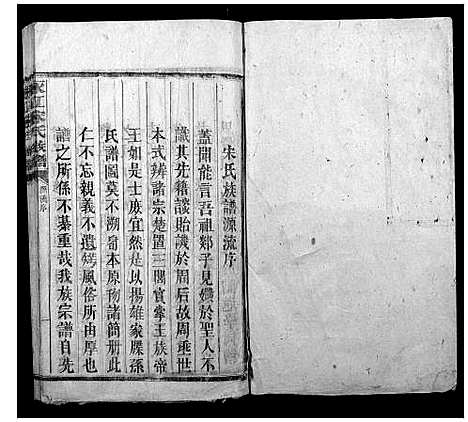 朱氏族譜源流序
蓋聞能言吾祖郯子見嫓於聖人不
識其先籍談貽譏於周后故周垂世
本式辨諸宗楚置三閭實掌王族帝
王如是士庶宜然是以揚雄家牒孫
氏譜圖莫不溯畨本原務諸簡册此
仁不忘親義不遺
風俗所由厚也
譜之所係不綦重哉我族宗譜自先
江朱氏族譜
源流序